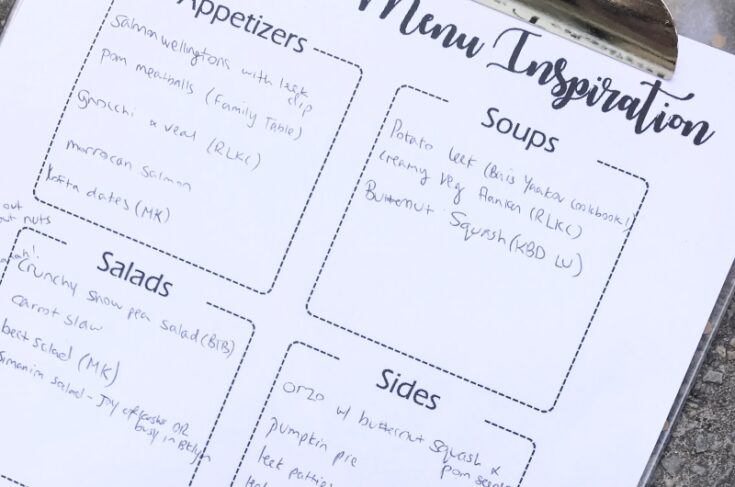 Menu Inspiration
Appetizers
Salmon wellingtons with leek
dip
pom meatballs (Family Table)
Gnocchi & veal (RLKC)
morrocan salmon
kofta dates (MK)
out
out nuts
Soups
Potato leek (Bais Yaakov cookbook!)
creamy veg flanken (RLKC)
Butternut Squash (KBD LW)
Salads
Crunchy snow pea salad (BTB)
carrot slaw
beet salad (MK)
simanim salad - Joy of kosher OR
busy in Bklyn
Sides
orzo w/ butternut squash &
pom seeds
pumpkin pie
leek patties